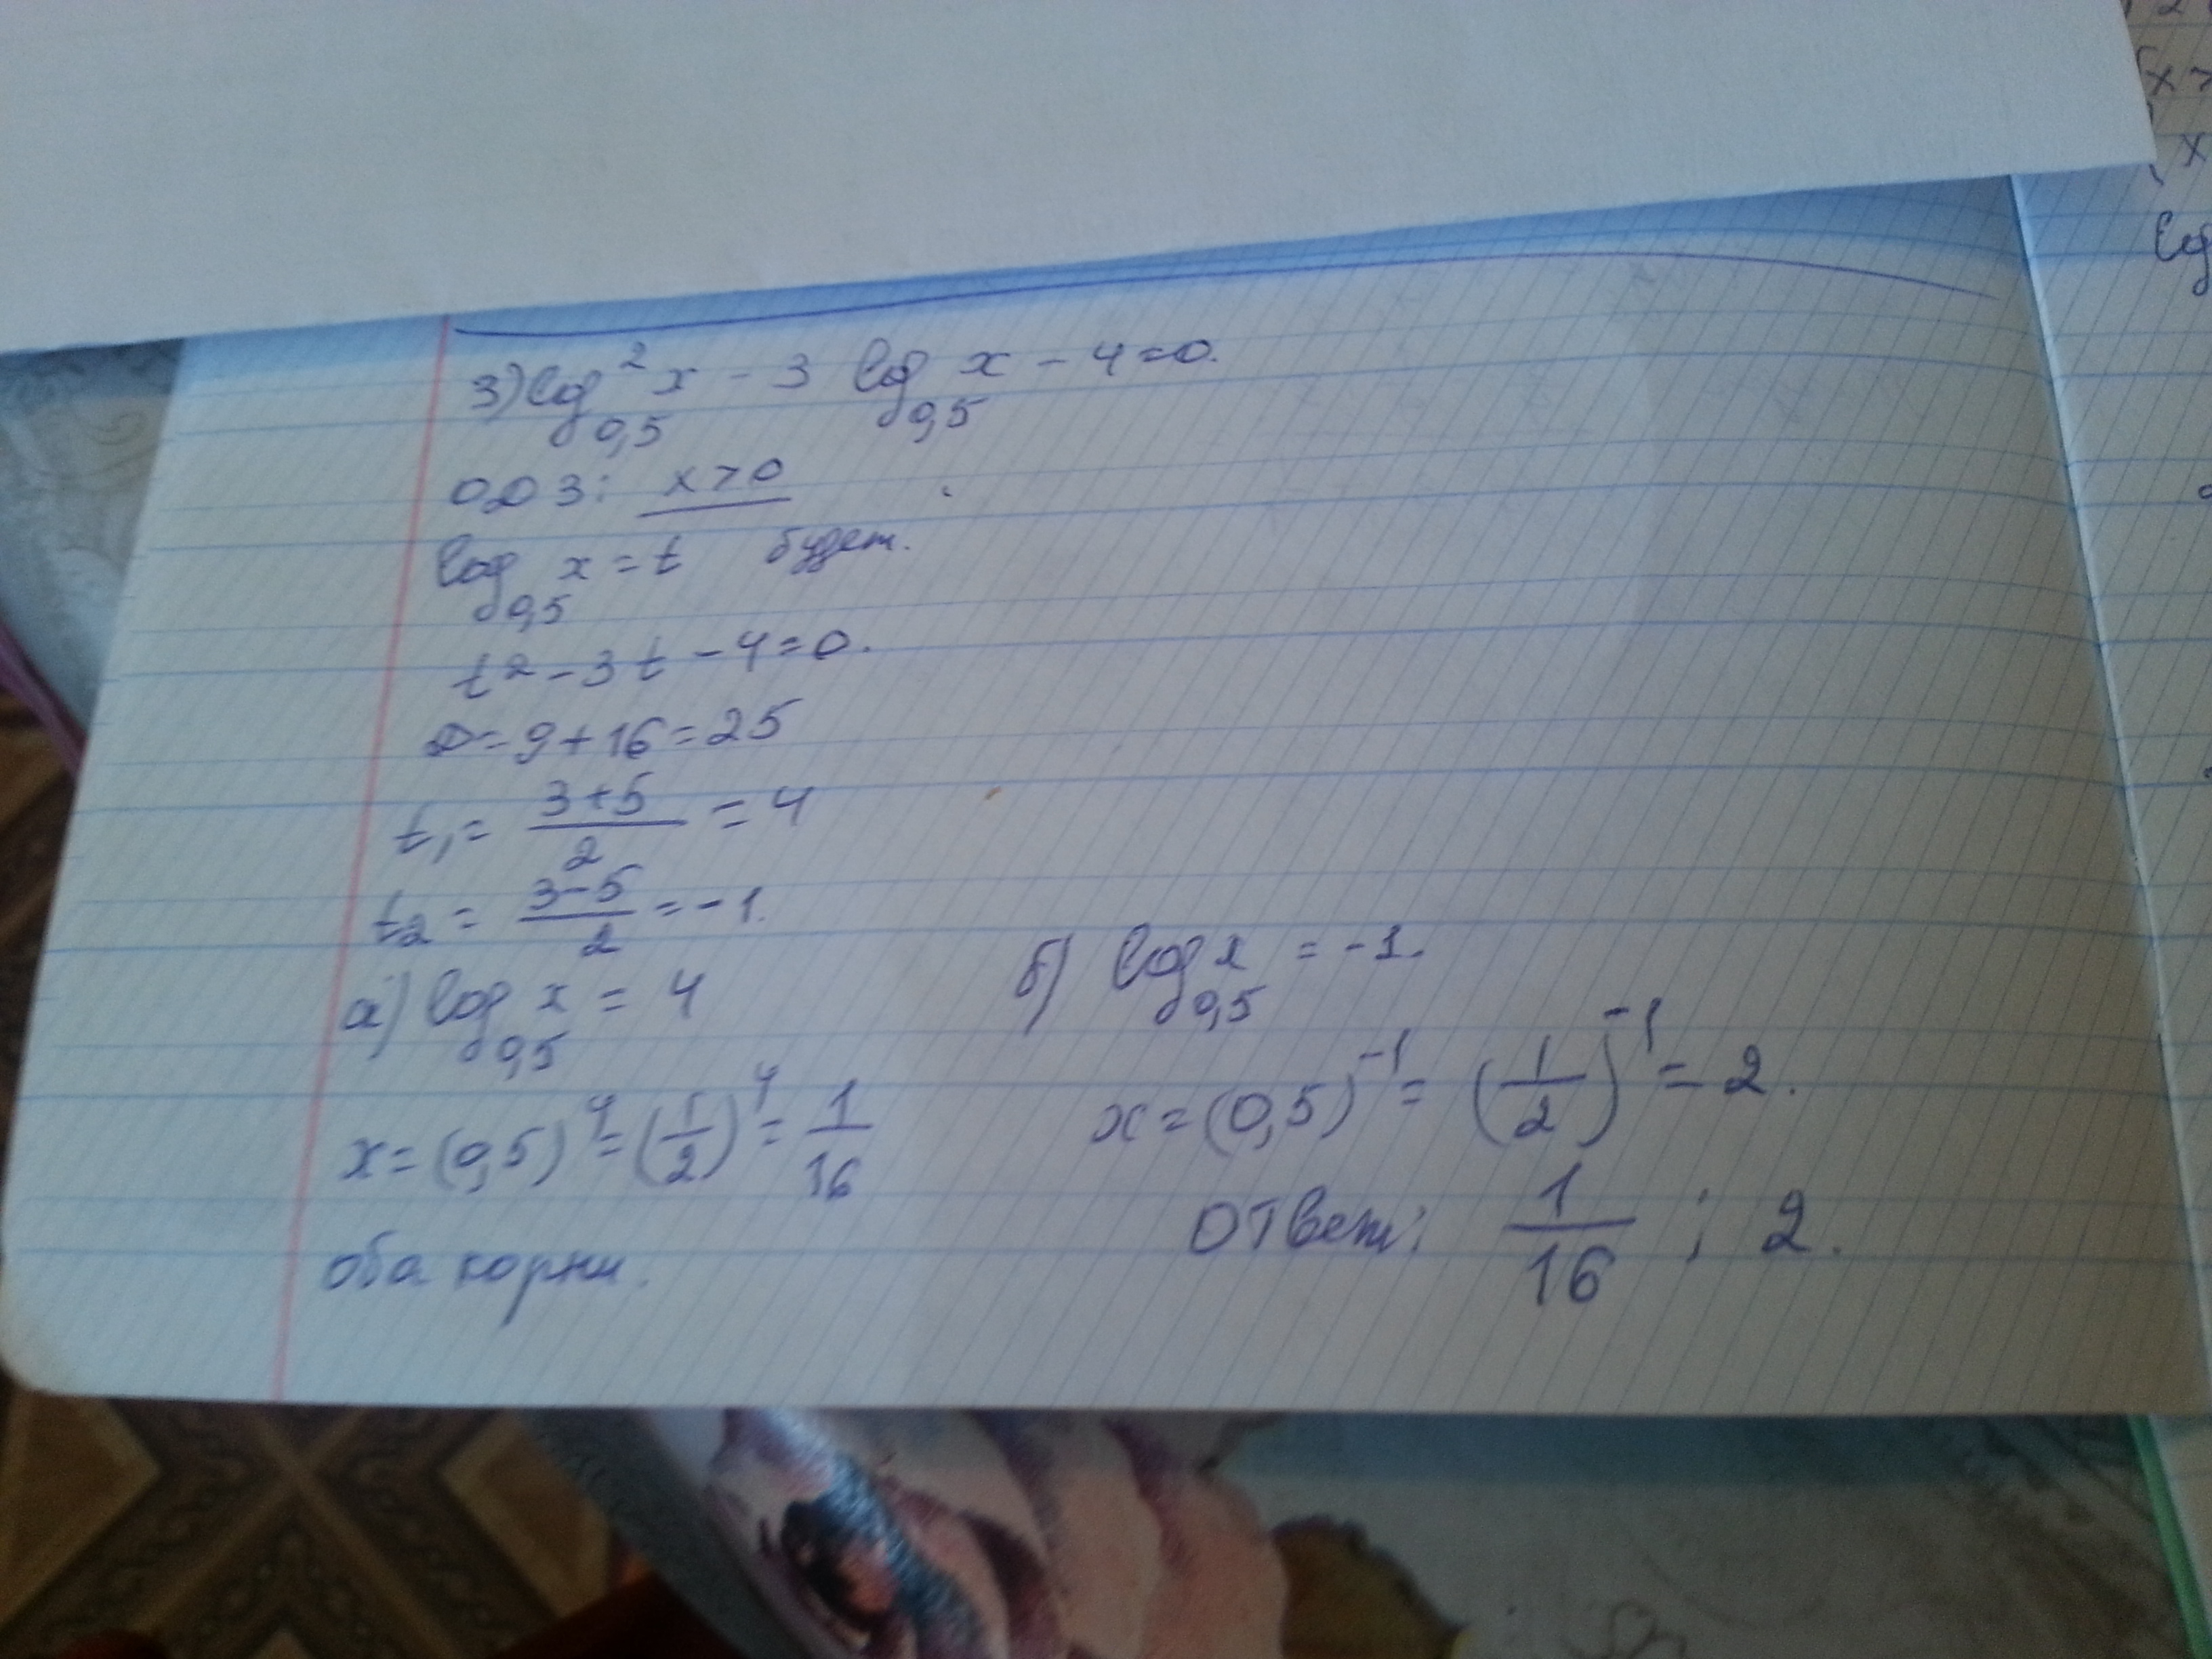 3) log²₀,₅ x - 3 log₀,₅ x - 4 = 0.
ОДЗ: x > 0
log₀,₅ x = t будет.
t² - 3t - 4 = 0.
D = 9 + 16 = 25
t₁ = (3+5)/2 = 4
t₂ = (3-5)/2 = -1.
а) log₀,₅ x = 4
x = (0,5)⁴ = (1/2)⁴ = 1/16
оба корни.
б) log₀,₅ x = -1.
x = (0,5)⁻¹ = (1/2)⁻¹ = 2.
Ответ: 1/16 ; 2.
x >
x
log